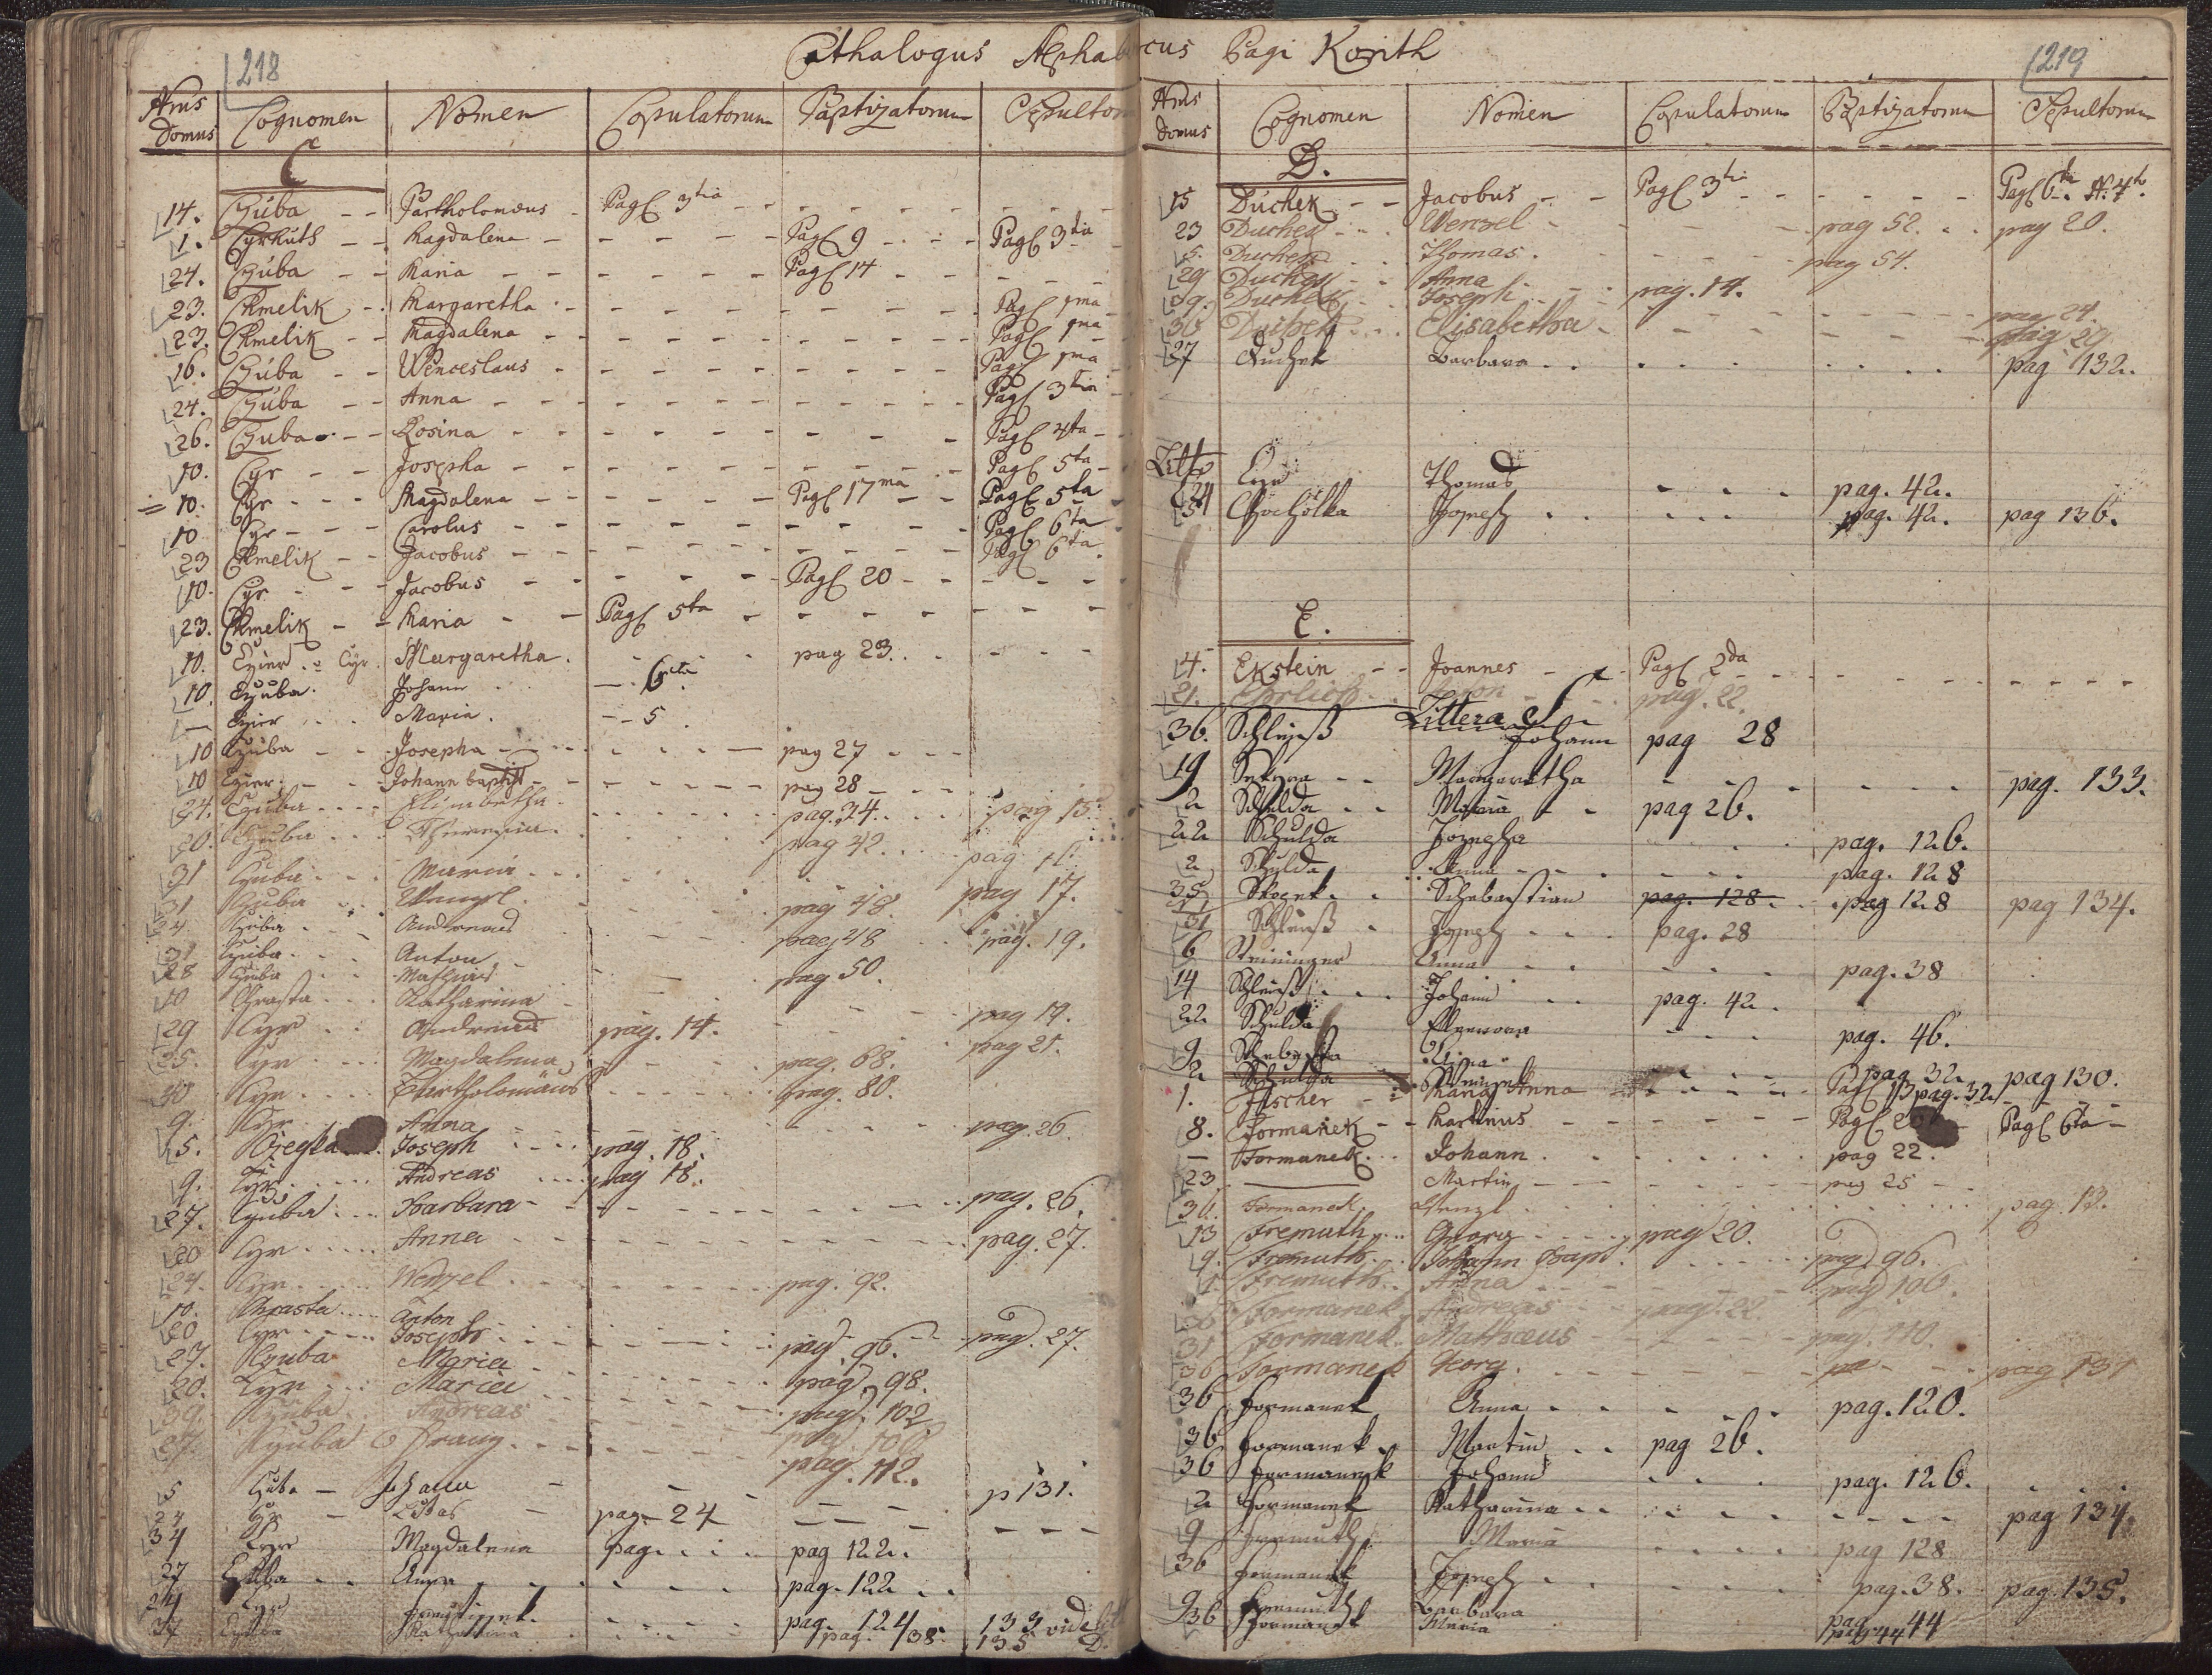 218
Cathalogus Alphabeticus Pagi Korith
219
Nrus Domus Cognomen Nomen Copulatorum Baptizatorum Sepultorum
C
14. Czúba - - Bartholomæus - Pag 3tia
1. Magdalena - Pag 9 - Pag 3tia
24. Czúba - - Maria - Pag 14 -
23. Chmelik - Margaretha - Pag 1ma
23. Chmelik - - Magdalena - Pag 1ma
16. Czúba - - Wenceslaus - Pag 1ma
24. Czúba - - Anna - Pag 3tia
26. Czuba - - Rosina - Pag 4ta
10. Cyr - - Josepha - Pag 5ta
10. Cyr - - Magdalena - Pag 17ma - Pag 5ta
10 Cyr - - Carolus - Pag 6ta
23 Chmelik - - Jacobus - Pag 6ta
10. Cyr - - Jacobus - Pag 20
23. Chmelik - - Maria - Pag 5ta
10. Czier Cyr. Margaretha. pag 23.
10 Czuba. Johann - 6ta
— Czier Maria. - - 5
10 Czuba - - Josepha - pag 27
10 Czier - - Johann baptist - pag 28
24. Czuba Elisabetha. pag. 34. pag 15
20. Czuba Theresia. pag 42. pag
31 Czuba Maria
31 Czuba Wenzl. pag 48. pag 17.
24 Czuba Andreas pag 48 pag. 19.
31 Czuba Anton pag 50.
28 Czuba Mathias
10 Chrasta Katharina pag 19.
29 Cyr Andreas pag. 14. pag 21.
25. Cyr Magdalena pag. 68.
30 Cyr Bartholomäus pag. 80.
9. Cyr Anna pag. 26
5. Joseph pag. 18.
9. Cyr Andreas pag 18.
27. Czuba Barbara pag. 26.
20 Cyr Anna pag. 27.
24. Cyr Wenzel pag. 92.
10. Chrasta Anton
20 Cyr Joseph pag. 96. pag. 27.
27. Czuba Maria pag. 98.
20. Cyr Maria pag. 102
39. Czuba Andreas pag. 108
27. Czuba Franz pag. 112.
5 Czuba - Johann p 131.
24 Cyr - pag - 24
34 Cyr Magdalena pag. pag 122.
37 Czuba Anna pag. 122
24 Cyr pag. 124 133 vide
37 Katharina pag. 138. 135 D.
Nrus domus Cognomen Nomen Copulatorum Baptizatorum Sepultorum
D.
15 Dúchek - - Jacobus - - Pag 3tia Pag 6ta N. 4to.
23 Duchek Wenzel pag 52. pag 20.
5. Duchek Thomas. pag 54.
29 Duchek Anna
29. Duchek Joseph pag. 14. pag 24.
36 Elisabetha pag 29
37 Duchek Barbara pag 132.
Litt
24 Cyr Thomas pag. 42.
5 Chocholka Joseph pag. 42. pag 136.
E.
4. Ekstein - - Joannes - Pag 2da
21. Ehrlich Anton pag. 22.
Littera S
36. Schleiß Johann pag 28
19 Margaretha pag. 133.
2 Schulda Maria pag 26.
22 Schulda Josepha pag. 126.
2 Schulda Anna pag. 128
35 Schebastian pag. 128. pag 128 pag 134.
31 Schleiß Joseph pag. 28
6 Steininger Anna pag. 38
14 Schleiß Johann pag. 42.
22 Schulda Eleonora pag. 46.
9 pag 32 pag 130.
2 Schulda Wenzel pag. 32
1. Fischer - Maria Anna Pag 13
8. Formanek - - Martinus Pag 20 Pag 6ta
— Formanek Johann pag 22.
23 — Martin pag 25
36. Formanek Wenzl pag. 13.
13 Fremuth Georg pag 20.
9. Fremuth Johann Bapt. pag. 96.
Fremuth Anna pag 106.
36 Formanek Andreas pag. 22
31 Formanek Matthæus pag. 110.
36 Formanek Georg. pa pag 131
36 Formanek Anna pag. 120.
36 Formanek Martin pag 26.
36 Formanek Johann pag. 126.
2 Formanek Katharina pag 134.
9 Fremuth Maria pag 128
36 Formanek Joseph pag. 38. pag. 135.
9 Fremuth Barbara pag. 44
36 Formanek Maria pag. 44